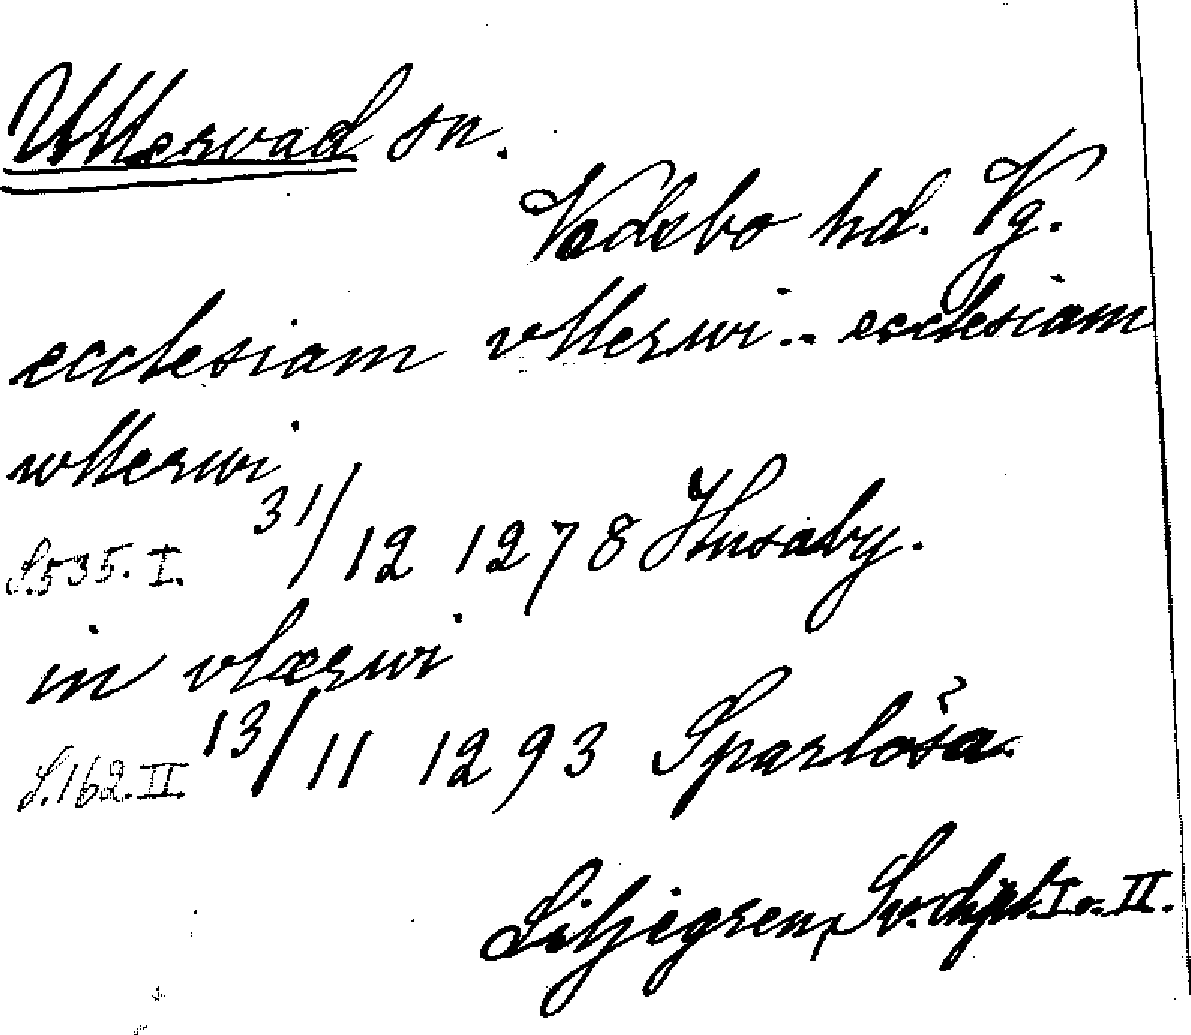 Ullervad sn.
Vadsbo hd. Vg.
ecclesiam vllerwi.. ecclesiam
wllerwi
S.535.I. 31/12 1278 Husaby.
in vlærwi
S.162.II. 13/11 1293 Sparlösa.
Liljegren, Sv. dipl. I o. II.